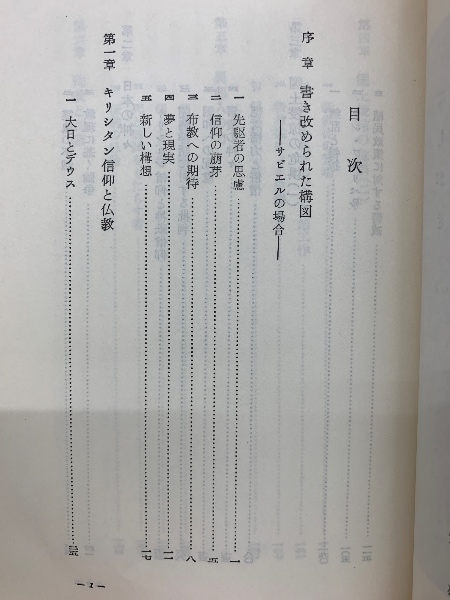 目次
序章 書き改められた構図
――サビエルの場合――
一 先駆者の思慮……一
二 信仰の萠芽……五
三 布教への期待……八
四 夢と現実……一二
五 新しい構想……一七
第一章 キリシタン信仰と仏教
一 大日とデウス……三五
― 1 ―